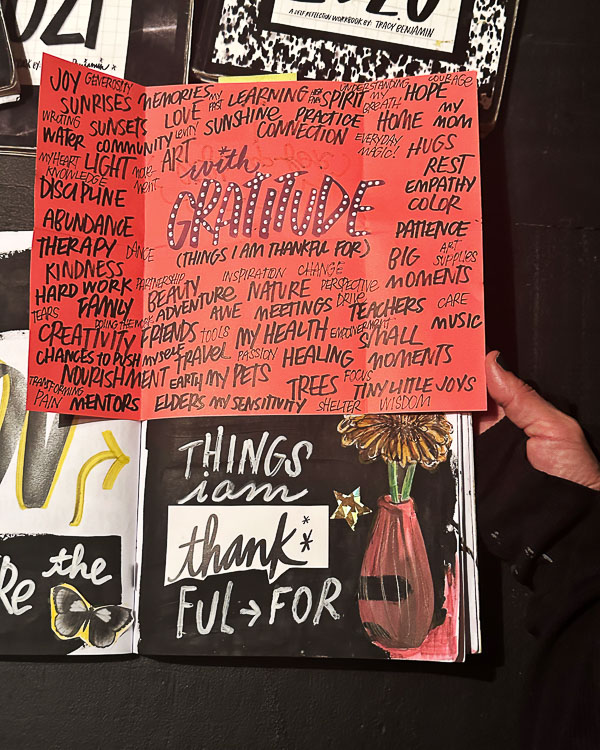 021
2020
A SELF REFLECTION WORKBOOK BY TRACY BENJAMIN
JOY GENEROSITY
SUNRISES MEMORIES MY PAST LEARNING HIGH FIVES SPIRIT UNDERSTANDING MY BREATH HOPE COURAGE
WRITING SUNSETS LOVE LEVITY SUNSHINE PRACTICE HOME MY MOM
WATER COMMUNITY CONNECTION EVERYDAY MAGIC! HUGS
MY HEART LIGHT MOVEMENT ART REST
KNOWLEDGE
DISCIPLINE EMPATHY
COLOR
with
GRATITUDE
(THINGS I AM THANKFUL FOR)
ABUNDANCE PATIENCE
THERAPY DANCE BIG ART SUPPLIES
KINDNESS PARTNERSHIP INSPIRATION CHANGE MOMENTS
HARD WORK BEAUTY NATURE PERSPECTIVE
TEARS FAMILY ADVENTURE AWE MEETINGS DRIVE TEACHERS CARE
DOING THE WORK MUSIC
CREATIVITY FRIENDS TOOLS MY HEALTH EMPOWERMENT SMALL
CHANGES TO PUSH MYSELF TRAVEL PASSION HEALING MOMENTS
NOURISHMENT EARTH MY PETS TREES FOCUS TINY LITTLE JOYS
TRANSFORMING PAIN MENTORS ELDERS MY SENSITIVITY SHELTER WISDOM
THINGS
i am
thank**
FUL → FOR
the